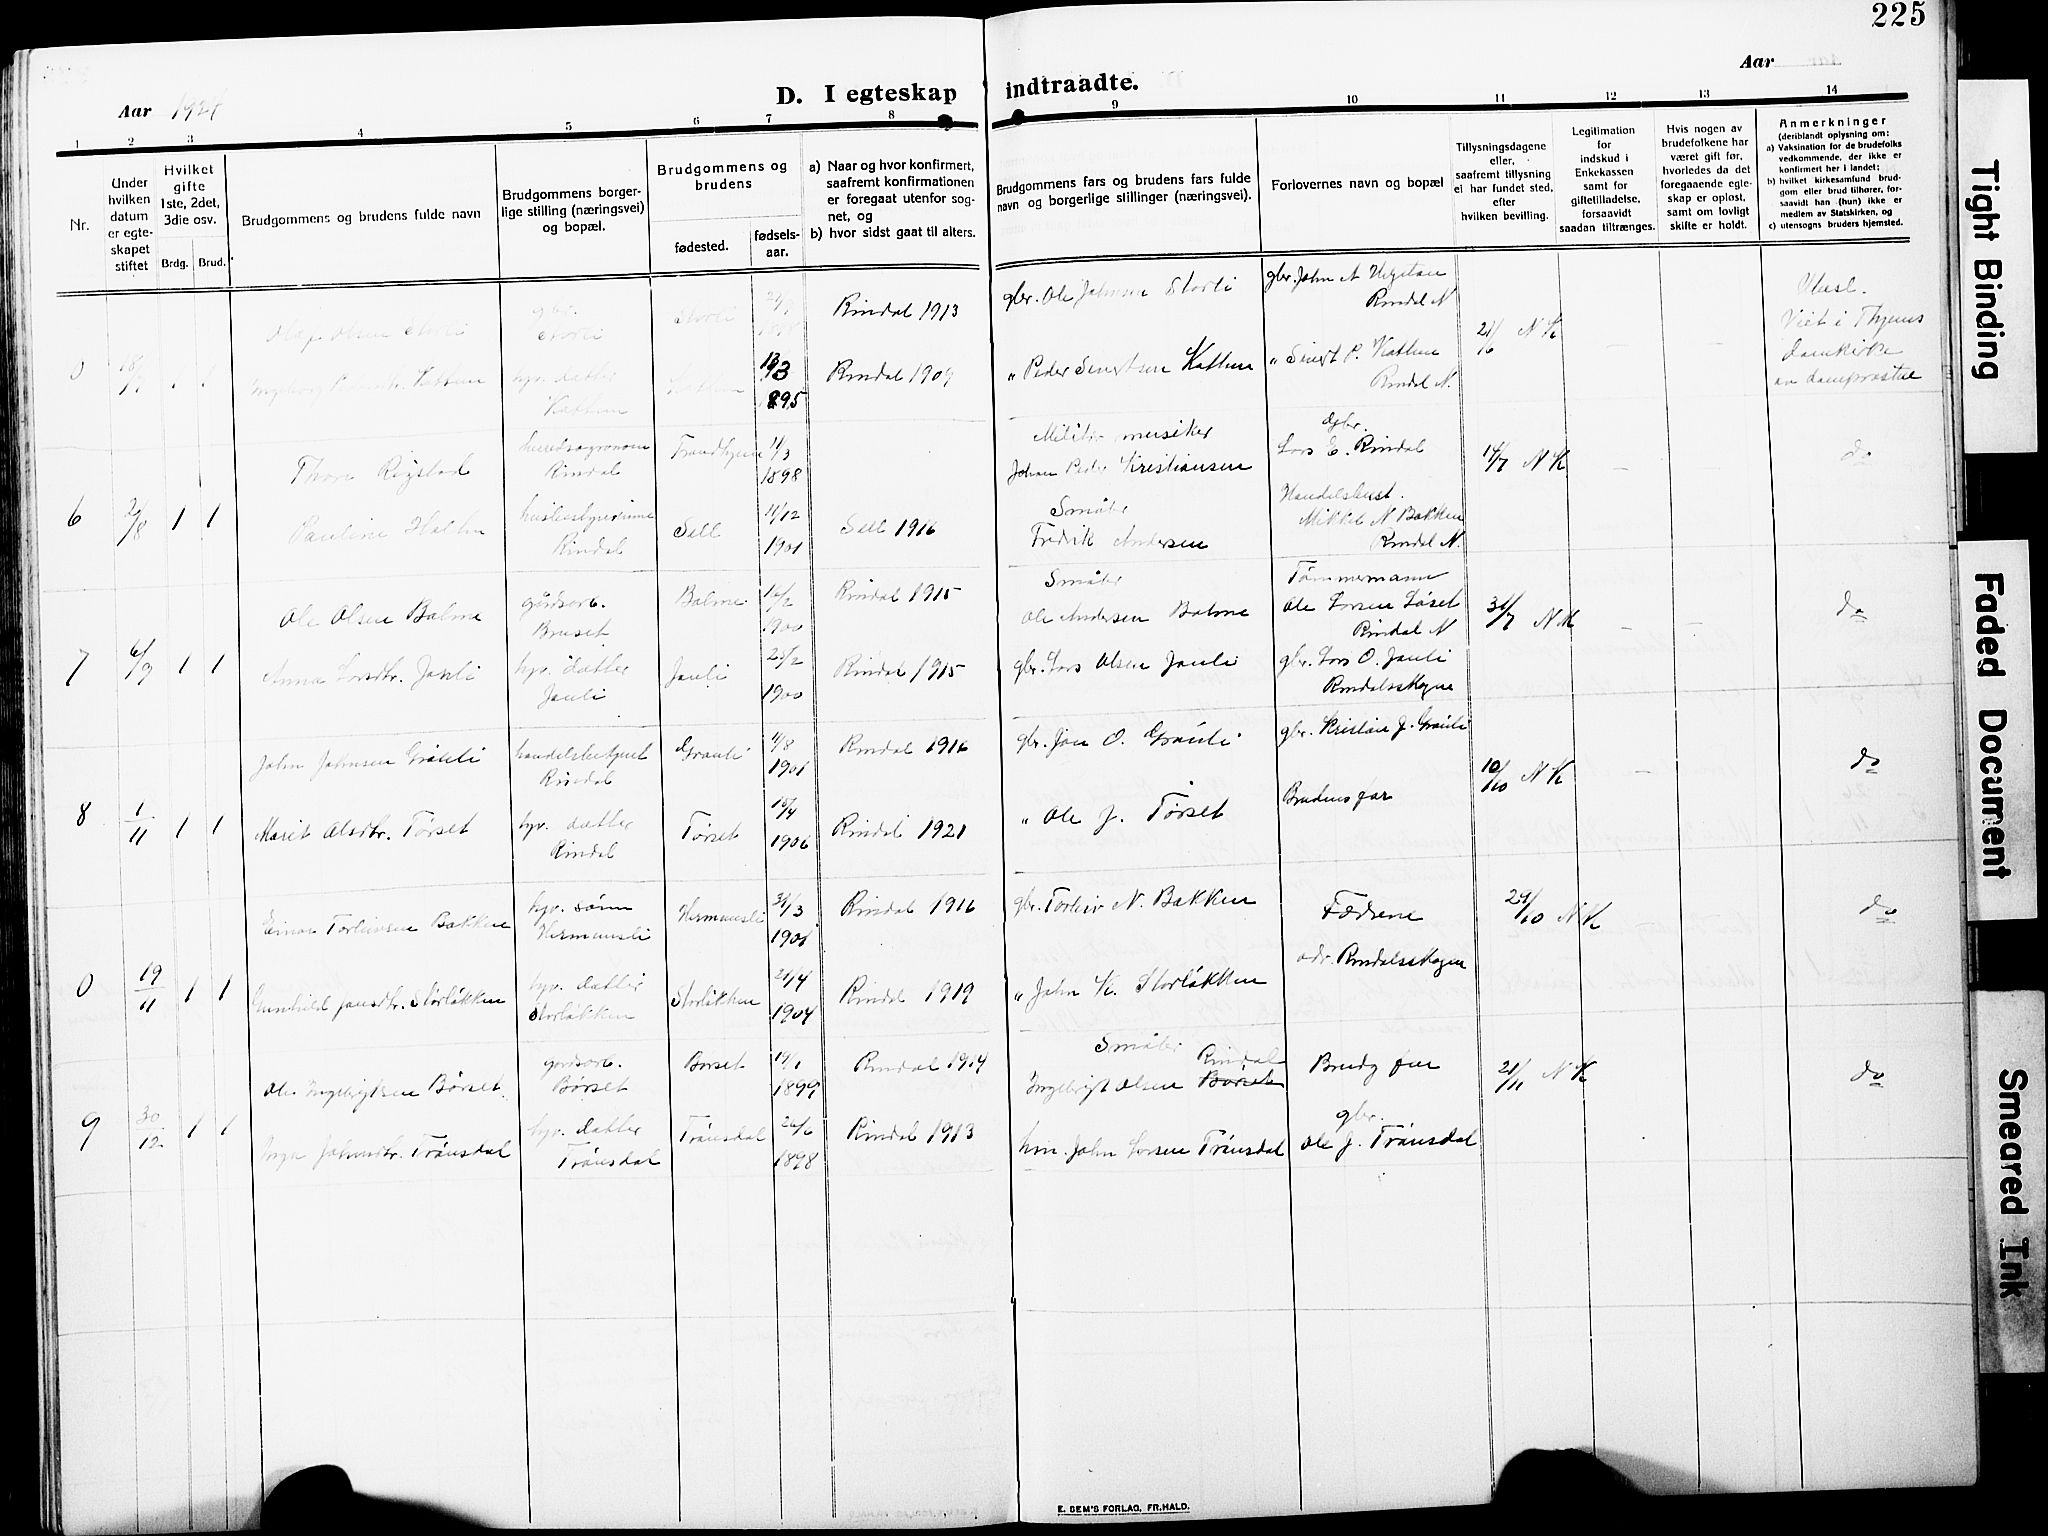 225
Aar 1924
D. I egteskap indtraadte.
Aar
1 2 3 4 5 6 7 8 9 10 11 12 13 14
Nr.
Under hvilken datum er egteskapet stiftet
Hvilket gifte 1ste, 2det, 3die osv.
Brdg. Brud.
Brudgommens og brudens fulde navn
Brudgommens borgerlige stilling (næringsvei) og bopæl.
Brudgommens og brudens
fødested.
fødselsaar.
a) Naar og hvor konfirmert, saafremt konfirmationen er foregaat utenfor sognet, og
b) hvor sidst gaat til alters.
Brudgommens fars og brudens fars fulde navn og borgerlige stillinger (næringsvei).
Forlovernes navn og bopæl
Tillysningsdagene eller, saafremt tillysning ei har fundet sted, efter hvilken bevilling.
Legitimation for indskud i Enkekassen samt for giftetilladelse, forsaavidt saadan tiltrænges.
Hvis nogen av brudefolkene har været gift før, hvorledes da det foregaaende egteskap er opløst, samt om lovligt skifte er holdt.
Anmerkninger
(deriblandt oplysning om:
a) Vaksination for de brudefolks vedkommende, der ikke er konfirmert her i landet;
b) hvilket kirkesamfund brudgom eller brud tilhører, forsaavidt han (hun) ikke er medlem av Statskirken, og
c) utensogns bruders hjemsted.
Olaf Olsen Storli
gbr. Storli
Storli
Rindal 1913
gbr. Ole Johnsen Storli
gbr. John A
Rindal N
1 1
hjv. datter Kattum
13/3 1895
Rindal 1909
" Peder Sivertsen Kattum
" Sivert P. Kattum
Rindal N.
21/6 N K
Viet i
Domkirke
av domprosten
Thore Rigstad
herredsagronom Rindal
Trondhjem
11/3 1898
Johan Peder Kristiansen
gbr. Lars E. Rindal
14/7 N K
do
6 2/8 1 1
Pauline
Rindal
Sell
11/12 1901
Sell 1916
Småbr
Fredrik Andersen
Mikkel N Bakken
Rindal N.
Ole Olsen Bolme
gårdsarb. Bruset
Bolme
16/2 1900
Rindal 1915
Småbr
Ole Andersen Bolme
Tømmermann
Ole Larsen Løset
Rindal N
31/7 N K
do
7 6/9 1 1
Anna Larsdtr. Jauli
hjv. datter Jauli
Jauli
25/2 1900
Rindal 1915
gbr. Lars Olsen Jauli
gbr. Lars O. Jauli
Rindalsskogen
John Johnsen Gråuli
handelsbetjent Rindal
Grauli
11/8 1901
Rindal 1916
gbr. Jon O. Gråuli
gbr. Kristian J. Gråuli
10/10 N K
do
8 1/11 1 1
Marit Olsdtr. Tørset
hjv. datter Rindal
Tørset
15/4 1906
Rindal 1921
" Ole J. Tørset
Brudens far
Einar Torleivsen Bakken
hjv. sønn Hermunsli
Hermunsli
31/3 1901
Rindal 1916
gbr. Torleiv N. Bakken
Fædrene
29/10 N K
do
0 19/11 1 1
Gunhild Jonsdtr. Storløkken
hjv. datter Storløkken
Storløkken
21/4 1904
Rindal 1919
" John K. Storløkken
adr. Rindalsskogen
Ole Ingebrigtsen Børset
gårdsarb. Børset
Børset
19/1 1899
Rindal 1914
Småbr
Ingebrigt Olsen Børset Rindal
Brudg far
21/11 N K
do
9 30/12 1 1
Johnsdtr. Trønsdal
hjv. datter Trønsdal
Trønsdal
26/6 1898
Rindal 1913
hm. John Larsen Trønsdal
gbr.
Ole J. Trønsdal
E. SEM'S FORLAG, FR.HALD.
Tight Binding
Faded Document
Smeared Ink